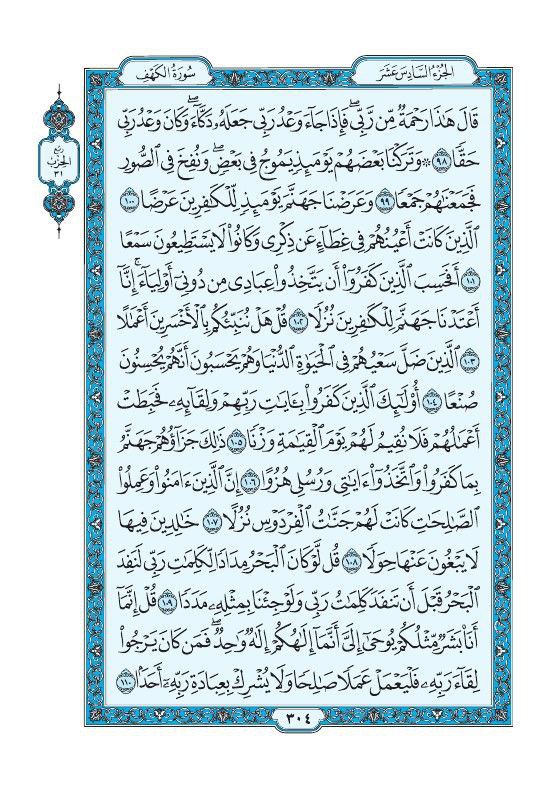 سُورَةُ الكَهْفِ
الجُزْءُ السَّادِسَ عَشَرَ
رُبْعُ
الحِزْبِ
٣١
قَالَ هَٰذَا رَحْمَةٌ مِّن رَّبِّى ۖ فَإِذَا جَآءَ وَعْدُ رَبِّى جَعَلَهُۥ دَكَّآءَ ۖ وَكَانَ وَعْدُ رَبِّى
حَقًّا ٩٨ ۞ وَتَرَكْنَا بَعْضَهُمْ يَوْمَئِذٍ يَمُوجُ فِى بَعْضٍ ۖ وَنُفِخَ فِى ٱلصُّورِ
فَجَمَعْنَٰهُمْ جَمْعًا ٩٩ وَعَرَضْنَا جَهَنَّمَ يَوْمَئِذٍ لِّلْكَٰفِرِينَ عَرْضًا ١٠٠
ٱلَّذِينَ كَانَتْ أَعْيُنُهُمْ فِى غِطَآءٍ عَن ذِكْرِى وَكَانُوا۟ لَا يَسْتَطِيعُونَ سَمْعًا
١٠١ أَفَحَسِبَ ٱلَّذِينَ كَفَرُوٓا۟ أَن يَتَّخِذُوا۟ عِبَادِى مِن دُونِىٓ أَوْلِيَآءَ ۚ إِنَّآ
أَعْتَدْنَا جَهَنَّمَ لِلْكَٰفِرِينَ نُزُلًا ١٠٢ قُلْ هَلْ نُنَبِّئُكُم بِٱلْأَخْسَرِينَ أَعْمَٰلًا
١٠٣ ٱلَّذِينَ ضَلَّ سَعْيُهُمْ فِى ٱلْحَيَوٰةِ ٱلدُّنْيَا وَهُمْ يَحْسَبُونَ أَنَّهُمْ يُحْسِنُونَ
صُنْعًا ١٠٤ أُو۟لَٰٓئِكَ ٱلَّذِينَ كَفَرُوا۟ بِـَٔايَٰتِ رَبِّهِمْ وَلِقَآئِهِۦ فَحَبِطَتْ
أَعْمَٰلُهُمْ فَلَا نُقِيمُ لَهُمْ يَوْمَ ٱلْقِيَٰمَةِ وَزْنًا ١٠٥ ذَٰلِكَ جَزَآؤُهُمْ جَهَنَّمُ
بِمَا كَفَرُوا۟ وَٱتَّخَذُوٓا۟ ءَايَٰتِى وَرُسُلِى هُزُوًا ١٠٦ إِنَّ ٱلَّذِينَ ءَامَنُوا۟ وَعَمِلُوا۟
ٱلصَّٰلِحَٰتِ كَانَتْ لَهُمْ جَنَّٰتُ ٱلْفِرْدَوْسِ نُزُلًا ١٠٧ خَٰلِدِينَ فِيهَا
لَا يَبْغُونَ عَنْهَا حِوَلًا ١٠٨ قُل لَّوْ كَانَ ٱلْبَحْرُ مِدَادًا لِّكَلِمَٰتِ رَبِّى لَنَفِدَ
ٱلْبَحْرُ قَبْلَ أَن تَنفَدَ كَلِمَٰتُ رَبِّى وَلَوْ جِئْنَا بِمِثْلِهِۦ مَدَدًا ١٠٩ قُلْ إِنَّمَآ
أَنَا۠ بَشَرٌ مِّثْلُكُمْ يُوحَىٰٓ إِلَىَّ أَنَّمَآ إِلَٰهُكُمْ إِلَٰهٌ وَٰحِدٌ ۖ فَمَن كَانَ يَرْجُوا۟
لِقَآءَ رَبِّهِۦ فَلْيَعْمَلْ عَمَلًا صَٰلِحًا وَلَا يُشْرِكْ بِعِبَادَةِ رَبِّهِۦٓ أَحَدًۢا ١١٠
٣٠٤